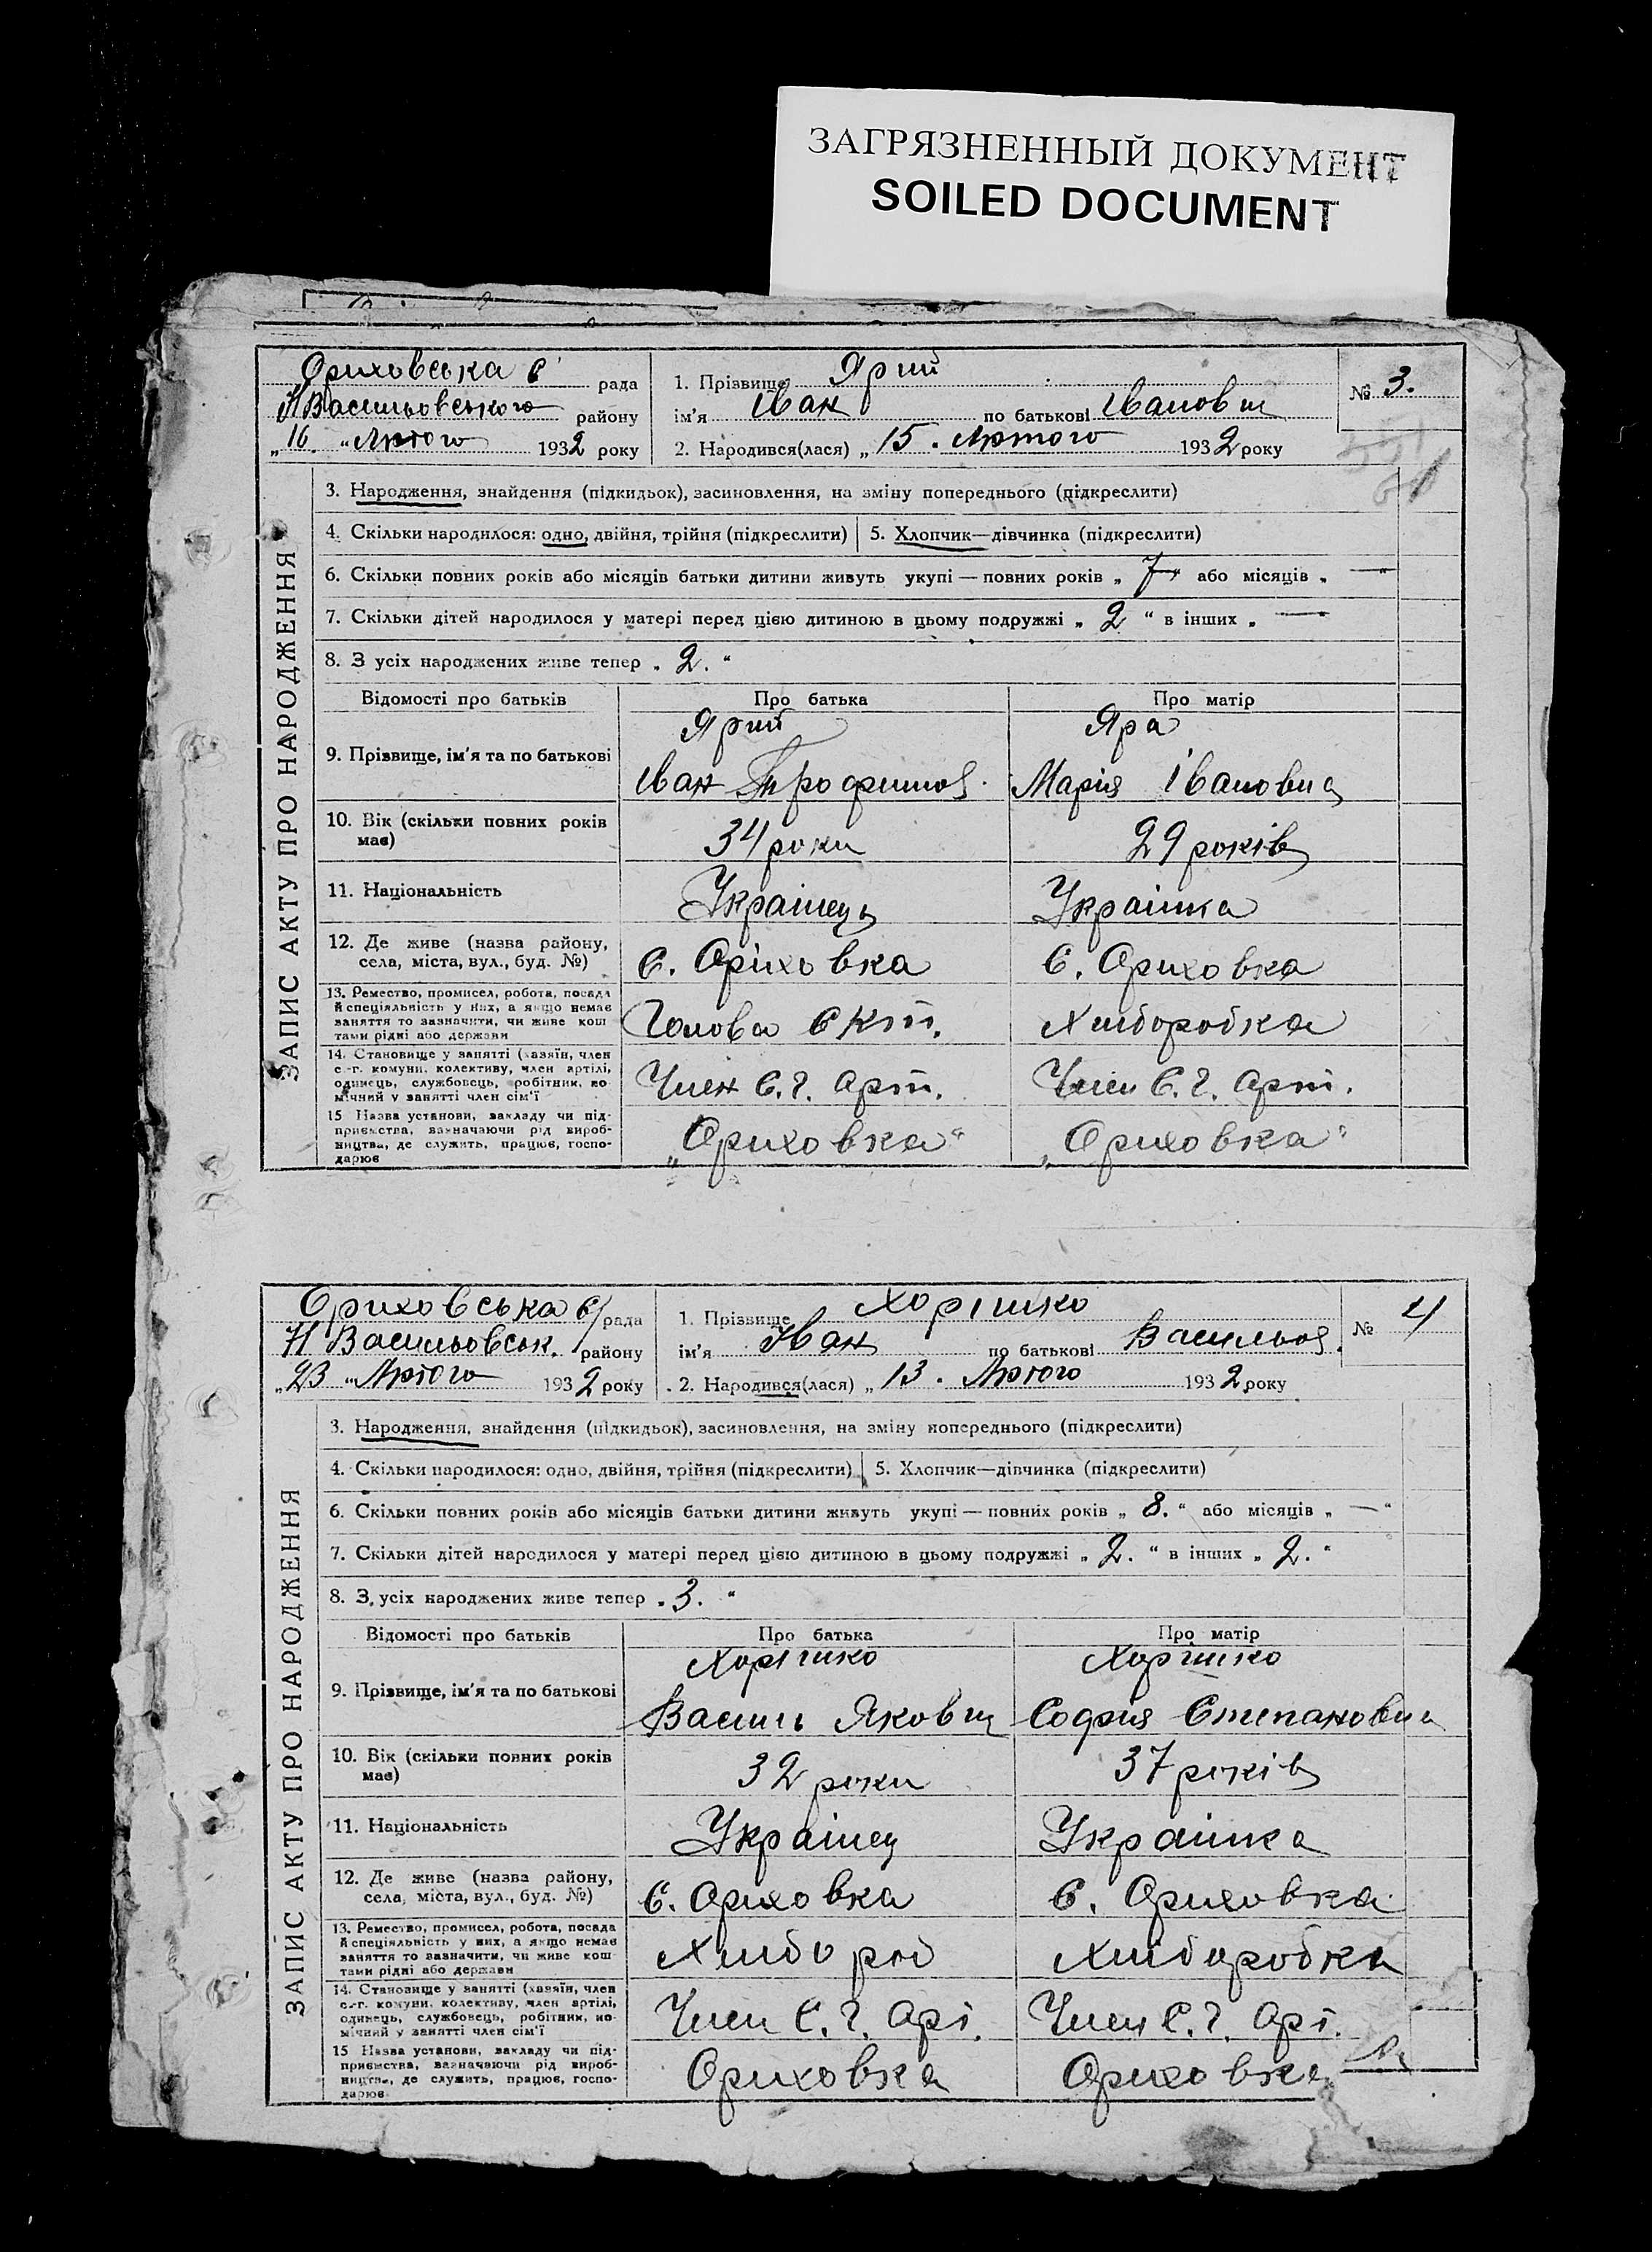 ЗАГРЯЗНЕННЫЙ ДОКУМЕНТ
SOILED DOCUMENT
Ориховська с рада
Н Васильовського району
„16. “ Лютого 1932 року
1. Прізвище Ярий
ім'я Іван по батькові Іванович
2. Народився(лася) „ 15. Лютого 1932 року
№ 3.
ЗАПИС АКТУ ПРО НАРОДЖЕННЯ
3. Народження, знайдення (підкидьок), засиновлення, на зміну попереднього (підкреслити)
4. Скільки народилося: одно, двійня, трійня (підкреслити) 5. Хлопчик—дівчинка (підкреслити)
6. Скільки повних років або місяців батьки дитини живуть укупі — повних років „ 7 “ або місяців „ — “
7. Скільки дітей народилося у матері перед цією дитиною в цьому подружжі „ 2 “ в інших „ —
8. З усіх народжених живе тепер „ 2. “
Відомості про батьків Про батька Про матір
9. Прізвище, ім'я та по батькові
Ярий
Іван Трофимов.
Яра
Мария Івановна
10. Вік (скільки повних років
має)
34 роки
29 років
11. Національність
Украінець
Украінка
12. Де живе (назва району,
села, міста, вул., буд. №)
с. Оріховка
с. Ориховка
13. Ремество, промисел, робота, посада
й спеціяльність у них, а якщо немає
заняття то зазначити, чи живе кош
тами рідні або держави
Голова
Хліборобка
14. Становище у занятті (хазяїн, член
с.-г. комуни, колективу, член артілі,
одинець, службовець, робітник, по-
мічний у занятті член сім'ї
Член С.г. арт.
Член С.г. арт.
15 Назва установи, закладу чи під-
приємства, зазначаючи рід вироб-
ництва, де служить, працює, госпо-
дарює
„Ориховка“
„Ориховка“
Ориховська с/рада
Н Васильовськ. району
„23 “ Лютого 1932 року
1. Прізвище Хорішко
ім'я Іван по батькові Васильов.
2. Народився(лася) „ 13. Лютого 1932 року
№ 4
ЗАПИС АКТУ ПРО НАРОДЖЕННЯ
3. Народження, знайдення (підкидьок), засиновлення, на зміну попереднього (підкреслити)
4. Скільки народилося: одно, двійня, трійня (підкреслити) 5. Хлопчик—дівчинка (підкреслити)
6. Скільки повних років або місяців батьки дитини живуть укупі — повних років „ 8. “ або місяців „ — “
7. Скільки дітей народилося у матері перед цією дитиною в цьому подружжі „ 2. “ в інших „ 2. “
8. З усіх народжених живе тепер „ 3. “
Відомості про батьків Про батька Про матір
9. Прізвище, ім'я та по батькові
Хорішко
Василь Якович
Хорішко
София Степановна
10. Вік (скільки повних років
має)
32 роки
37 років
11. Національність
Украінец
Украінка
12. Де живе (назва району,
села, міста, вул., буд. №)
с. Ориховка
с. Ориховка
13. Ремество, промисел, робота, посада
й спеціяльність у них, а якщо немає
заняття то зазначити, чи живе кош
тами рідні або держави
Хлібороб
Хліборобка
14. Становище у занятті (хазяїн, член
с.-г. комуни, колективу, член артілі,
одинець, службовець, робітник, по-
мічний у занятті член сім'ї
Член С.г. арт.
Член С.г. арт.
15 Назва установи, закладу чи під-
приємства, зазначаючи рід вироб-
ництва, де служить, працює, госпо-
дарює
Ориховка
Ориховка